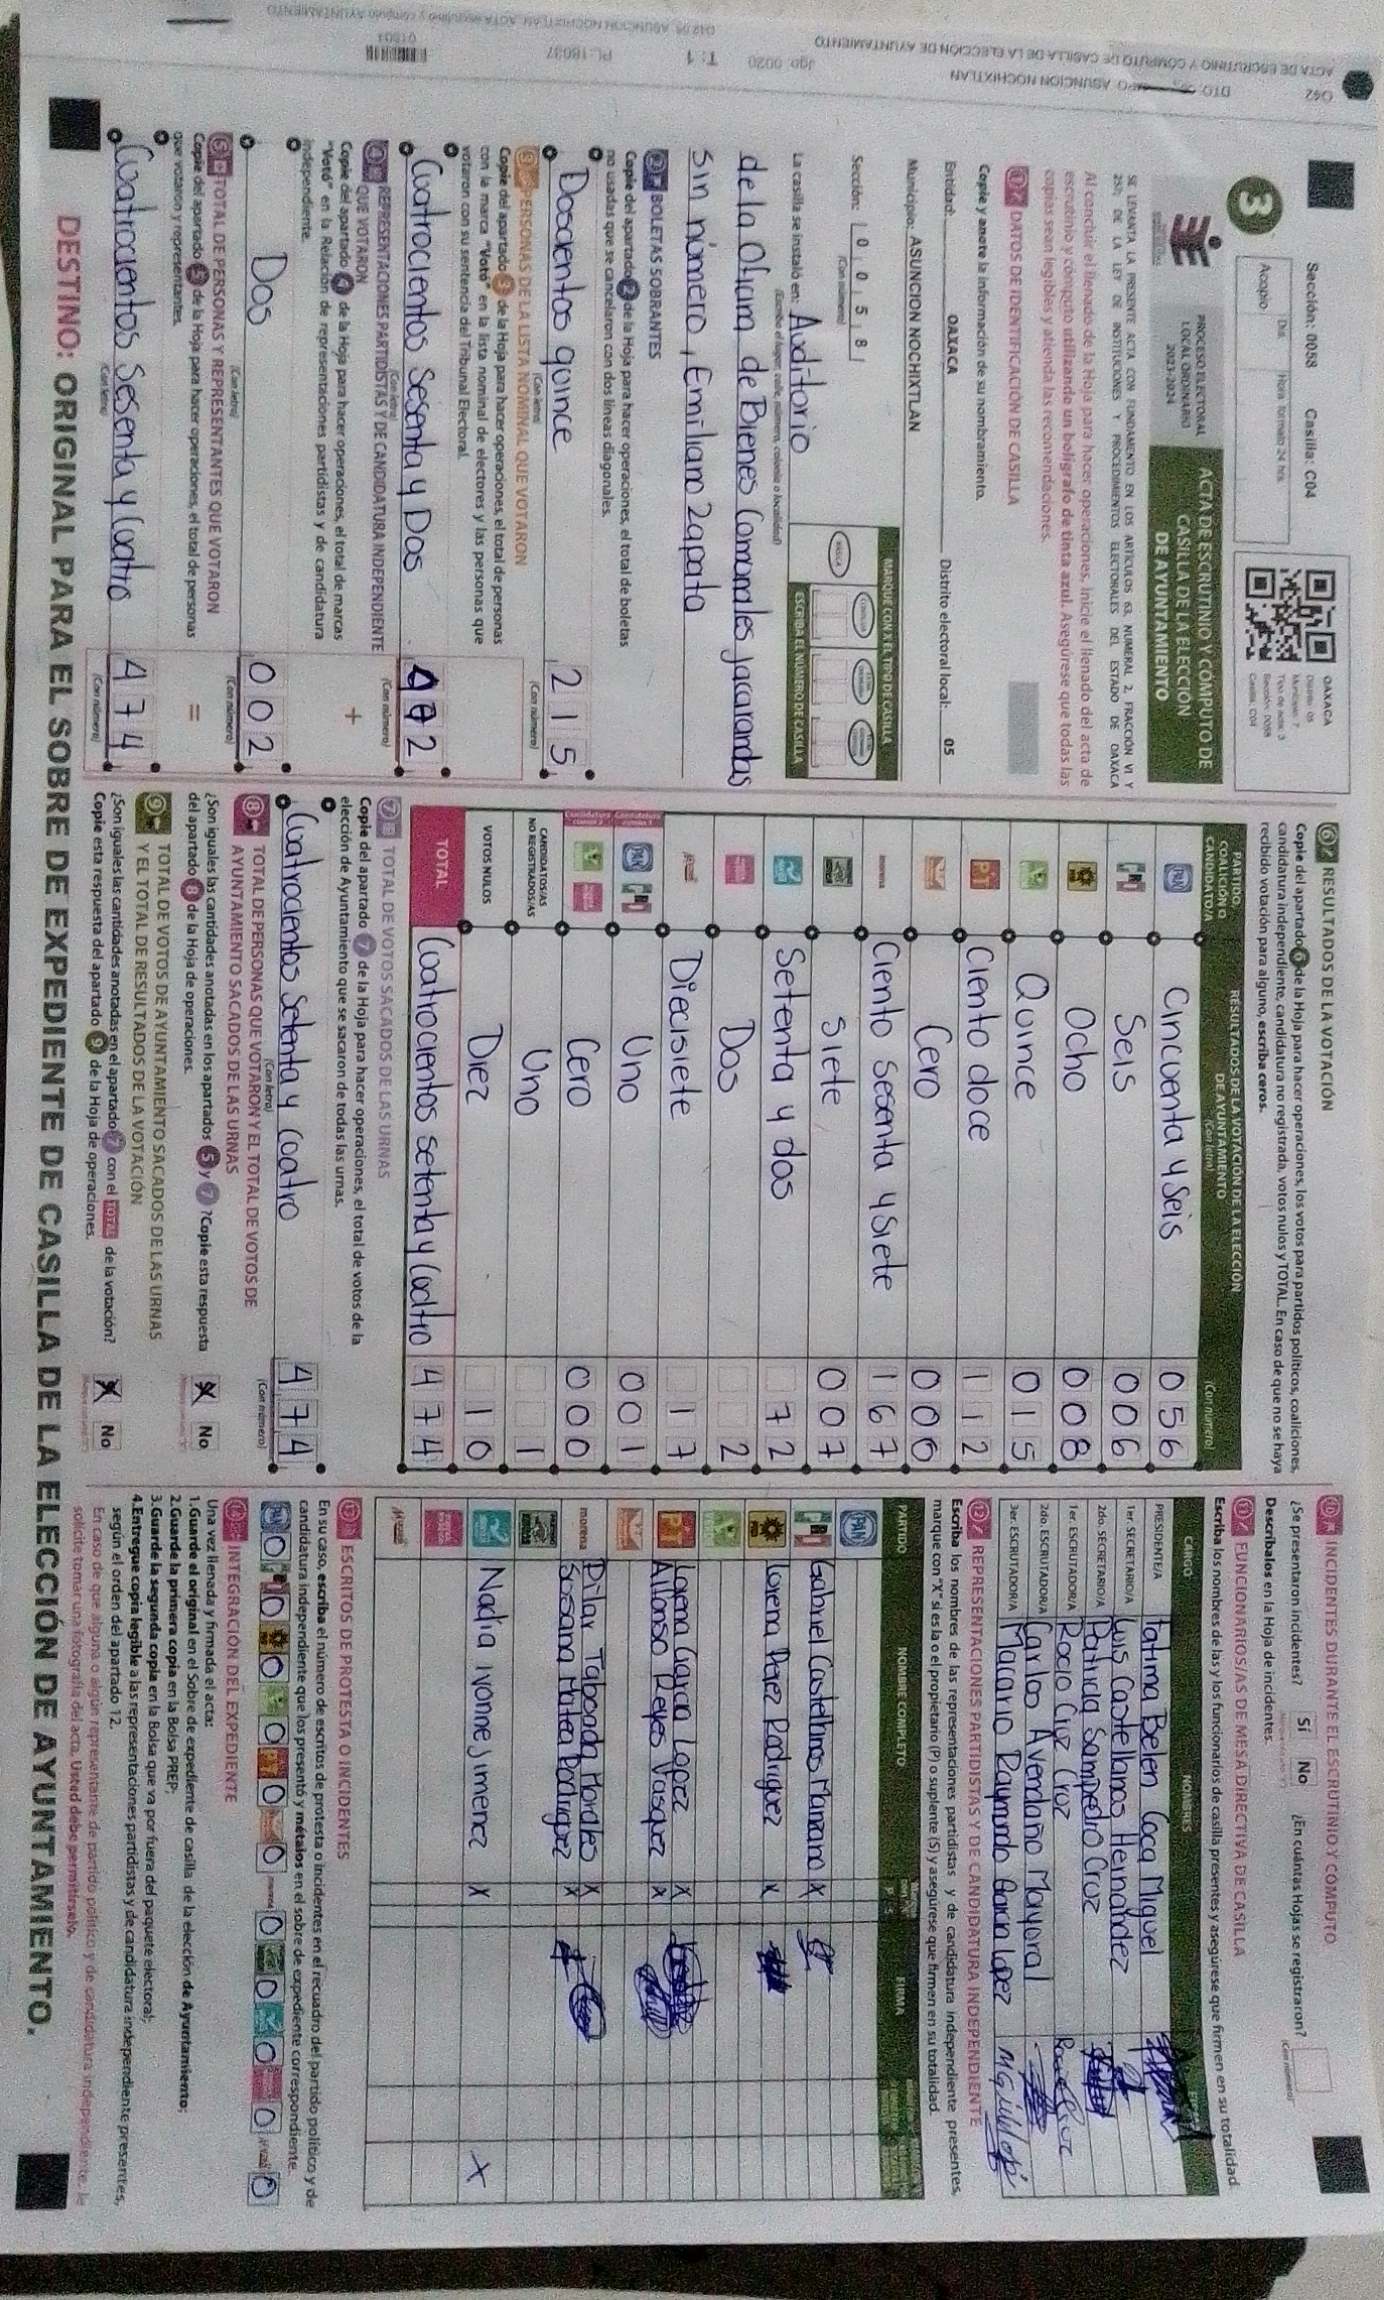 042 DTO. MPO. ASUNCION NOCHIXTLAN
ACTA DE ESCRUTINIO Y CÓMPUTO DE CASILLA DE LA ELECCIÓN DE AYUNTAMIENTO
Sección: 0058 Casilla: C04
3
Día Hora formato 24 hrs
Acopio
OAXACA
PROCESO ELECTORAL
LOCAL ORDINARIO
2023-2024
ACTA DE ESCRUTINIO Y CÓMPUTO DE
CASILLA DE LA ELECCIÓN
DE AYUNTAMIENTO
SE LEVANTA LA PRESENTE ACTA CON FUNDAMENTO EN LOS ARTÍCULOS 63, NUMERAL 2, FRACCIÓN VI Y
Al concluir el llenado de la Hoja para hacer operaciones, inicie el llenado del acta de
escrutinio y cómputo utilizando un bolígrafo de tinta azul. Asegúrese que todas las
copias sean legibles y atienda las recomendaciones.
1 DATOS DE IDENTIFICACIÓN DE CASILLA
Copie y anote la información de su nombramiento.
Entidad: OAXACA Distrito electoral local: 05
Municipio: ASUNCION NOCHIXTLAN
Sección: 0 0 5 8
(Con número)
MARQUE CON X EL TIPO DE CASILLA
ESCRIBA EL NÚMERO DE CASILLA
La casilla se instaló en: Auditorio
(Escriba el lugar: calle, número, colonia o localidad)
de la Oficina de Bienes Comunales Jacarandas
sin número, Emiliano Zapata
2 BOLETAS SOBRANTES
Copie del apartado 2 de la Hoja para hacer operaciones, el total de boletas
no usadas que se cancelaron con dos líneas diagonales.
Doscientos quince 215
(Con letra) (Con número)
3 PERSONAS DE LA LISTA NOMINAL QUE VOTARON
Copie del apartado 3 de la Hoja para hacer operaciones, el total de personas
con la marca "Votó" en la lista nominal de electores y las personas que
votaron con su sentencia del Tribunal Electoral.
Cuatrocientos Sesenta y Dos
(Con letra) (Con número)
4 REPRESENTACIONES PARTIDISTAS Y DE CANDIDATURA INDEPENDIENTE
QUE VOTARON
Copie del apartado 4 de la Hoja para hacer operaciones, el total de marcas
"Votó" en la Relación de representaciones partidistas y de candidatura
independiente.
+
Dos 002
(Con letra) (Con número)
5 TOTAL DE PERSONAS Y REPRESENTANTES QUE VOTARON
Copie del apartado 5 de la Hoja para hacer operaciones, el total de personas
que votaron y representantes.
=
Cuatrocientos Sesenta y Cuatro 474
(Con letra) (Con número)
6 RESULTADOS DE LA VOTACIÓN
Copie del apartado 6 de la Hoja para hacer operaciones, los votos para partidos políticos, coaliciones,
candidatura independiente, candidatura no registrada, votos nulos y TOTAL. En caso de que no se haya
recibido votación para alguno, escriba ceros.
PARTIDO, COALICIÓN O CANDIDATO/A
RESULTADOS DE LA VOTACIÓN DE LA ELECCIÓN DE AYUNTAMIENTO
(Con letra) (Con número)
PAN Cincuenta y Seis 056
PRI Seis 006
PRD Ocho 008
Quince 015
PT Ciento doce 112
Cero 000
morena Ciento Sesenta y Siete 167
Siete 007
Setenta y dos 72
Dos 2
Diecisiete 17
PAN PRI Uno 001
Cero 000
CANDIDATOS/AS NO REGISTRADOS/AS Uno 1
VOTOS NULOS Diez 10
TOTAL Cuatrocientos setenta y Cuatro 474
7 TOTAL DE VOTOS SACADOS DE LAS URNAS
Copie del apartado 7 de la Hoja para hacer operaciones, el total de votos de la
elección de Ayuntamiento que se sacaron de todas las urnas.
Cuatrocientos Setenta y Cuatro 474
(Con letra) (Con número)
8 TOTAL DE PERSONAS QUE VOTARON Y EL TOTAL DE VOTOS DE
AYUNTAMIENTO SACADOS DE LAS URNAS
¿Son iguales las cantidades anotadas en los apartados 5 y 7? Copie esta respuesta
del apartado 8 de la Hoja de operaciones.
X No
9 TOTAL DE VOTOS DE AYUNTAMIENTO SACADOS DE LAS URNAS
Y EL TOTAL DE RESULTADOS DE LA VOTACIÓN
¿Son iguales las cantidades anotadas en el apartado 7 con el TOTAL de la votación?
Copie esta respuesta del apartado 9 de la Hoja de operaciones.
X No
10 INCIDENTES DURANTE EL ESCRUTINIO Y CÓMPUTO
¿Se presentaron incidentes? Sí No ¿En cuántas Hojas se registraron?
Descríbalos en la Hoja de incidentes.
11 FUNCIONARIOS/AS DE MESA DIRECTIVA DE CASILLA
Escriba los nombres de las y los funcionarios de casilla presentes y asegúrese que firmen en su totalidad
CARGO NOMBRES
PRESIDENTE/A Fatima Belen Coca Miguel
1er. SECRETARIO/A Luis Castellanos Hernandez
2do. SECRETARIO/A Patricia Sampedro Cruz
1er. ESCRUTADOR/A Rocio Cruz Cruz
2do. ESCRUTADOR/A Carlos Avendaño Mayoral
3er. ESCRUTADOR/A Macario Raymundo Garcia Lopez
12 REPRESENTACIONES PARTIDISTAS Y DE CANDIDATURA INDEPENDIENTE
Escriba los nombres de las representaciones partidistas y de candidatura independiente presentes,
marque con "X" si es la o el propietario (P) o suplente (S) y asegúrese que firmen en su totalidad.
PARTIDO NOMBRE COMPLETO FIRMA
PAN
PRI Gabriel Castellanos Manzano X
PRD Lorena Perez Rodriguez X
PT Lorena Garcia Lopez X
Alfonso Reyes Vasquez X
morena Pilar Taboada Morales X
Susana Mateo Rodriguez X
Nadia Ivonne Jimenez X X
13 ESCRITOS DE PROTESTA O INCIDENTES
En su caso, escriba el número de escritos de protesta o incidentes en el recuadro del partido político y de
candidatura independiente que los presentó y métalos en el sobre de expediente correspondiente.
0 0 0 0 0 0 0 0 0 0 0
14 INTEGRACIÓN DEL EXPEDIENTE
Una vez llenada y firmada el acta:
1.Guarde el original en el Sobre de expediente de casilla de la elección de Ayuntamiento;
2.Guarde la primera copia en la Bolsa PREP;
3.Guarde la segunda copia en la Bolsa que va por fuera del paquete electoral;
4.Entregue copia legible a las representaciones partidistas y de candidatura independiente presentes,
según el orden del apartado 12.
En caso de que alguna o algún representante de partido político y de candidatura independiente, le
solicite tomar una fotografía del acta, Usted debe permitírselo.
DESTINO: ORIGINAL PARA EL SOBRE DE EXPEDIENTE DE CASILLA DE LA ELECCIÓN DE AYUNTAMIENTO.